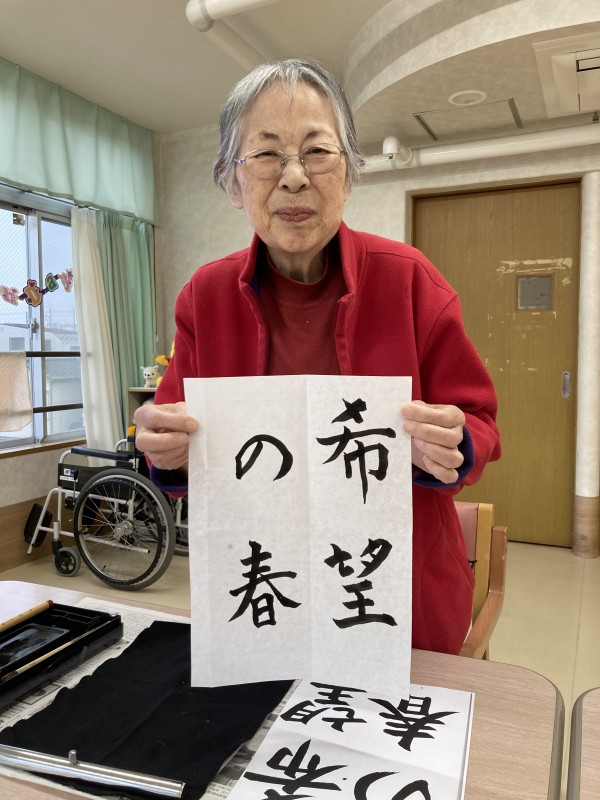 希望
の春
希望
の春